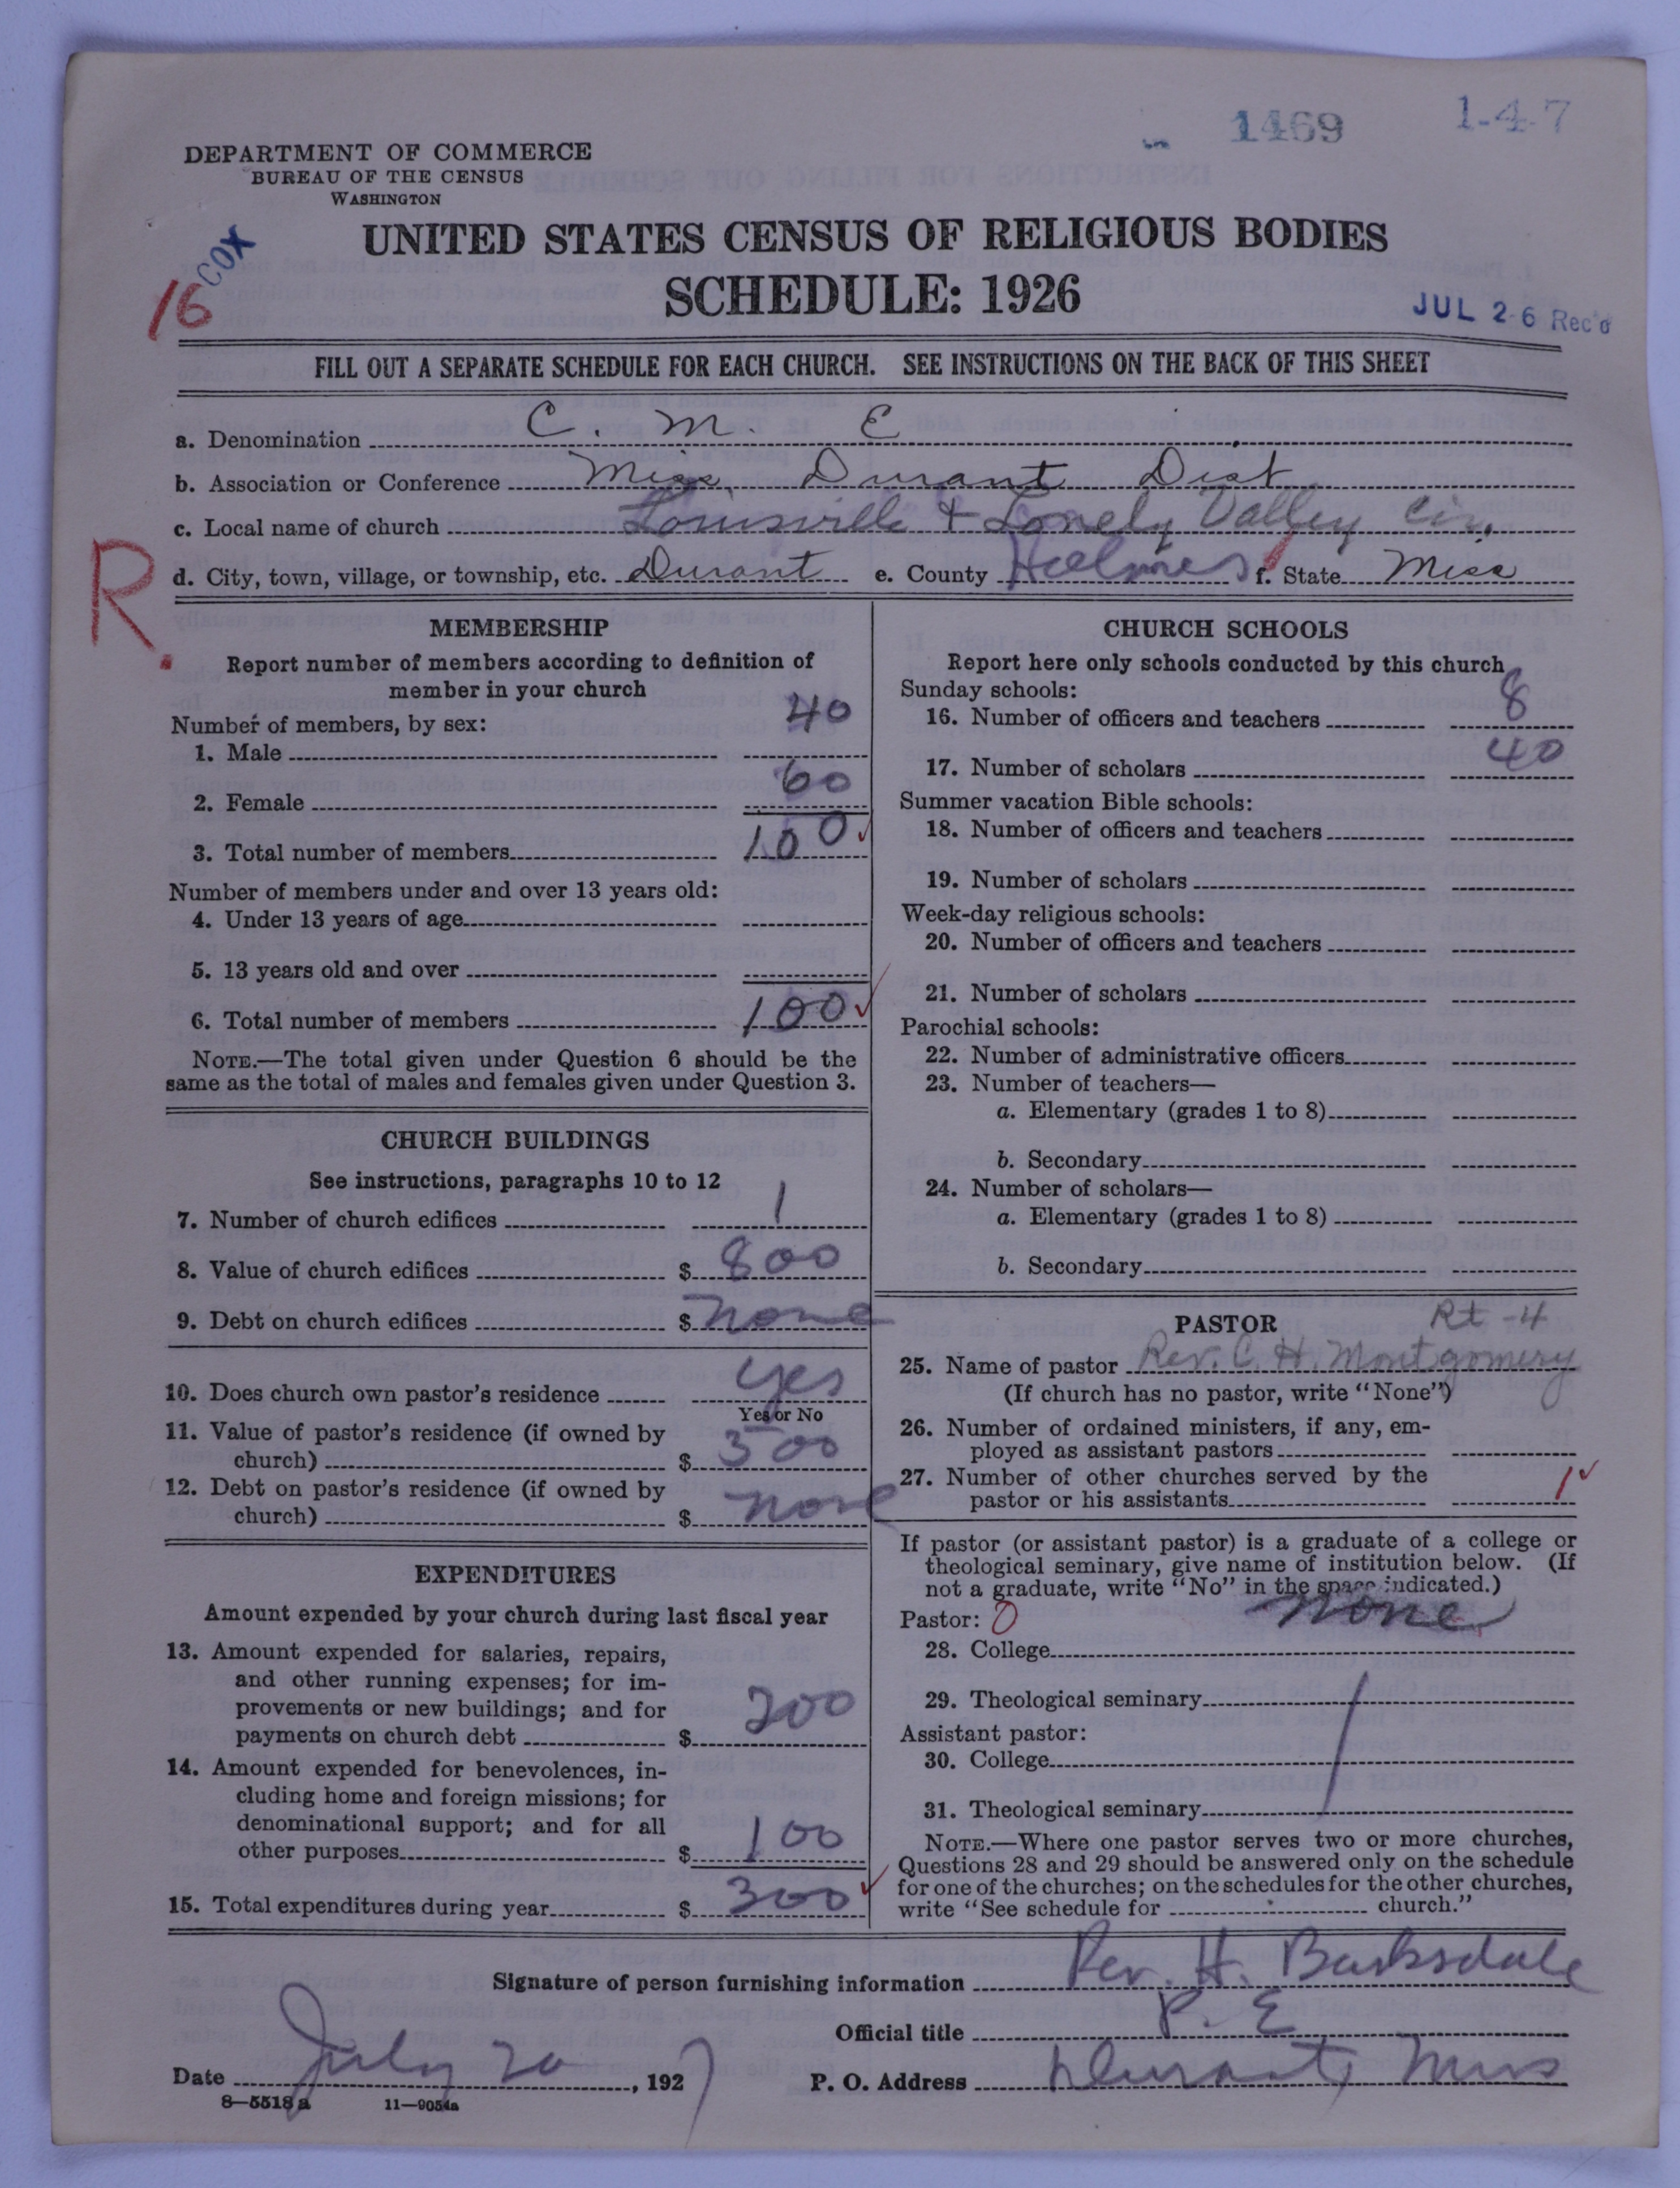 1469
1-4-7
DEPARTMENT OF COMMERCE
BUREAU OF THE CENSUS
WASHINGTON
COX
16
UNITED STATES CENSUS OF RELIGIOUS BODIES
SCHEDULE: 1926
JUL 26 Rec'd
FILL OUT A SEPARATE SCHEDULE FOR EACH CHURCH. SEE INSTRUCTIONS ON THE BACK OF THIS SHEET
a. Denomination C. M. E
b. Association or Conference Miss. Durant Dist
c. Local name of church Louisville + Lonely Valley Cir.
R.
d. City, town, village, or township, etc. Durant e. County Holmes f. State Miss
MEMBERSHIP
Report number of members according to definition of
member in your church
Number of members, by sex:
1. Male 40
2. Female 60
3. Total number of members 100
Number of members under and over 13 years old:
4. Under 13 years of age
5. 13 years old and over
6. Total number of members 100
NOTE.—The total given under Question 6 should be the
same as the total of males and females given under Question 3.
CHURCH BUILDINGS
See instructions, paragraphs 10 to 12
7. Number of church edifices 1
8. Value of church edifices $ 800
9. Debt on church edifices $ none
10. Does church own pastor's residence yes
Yes or No
11. Value of pastor's residence (if owned by
church) $ 300
12. Debt on pastor's residence (if owned by
church) $ none
EXPENDITURES
Amount expended by your church during last fiscal year
13. Amount expended for salaries, repairs,
and other running expenses; for im-
provements or new buildings; and for
payments on church debt $ 200
14. Amount expended for benevolences, in-
cluding home and foreign missions; for
denominational support; and for all
other purposes $ 100
15. Total expenditures during year $ 300
CHURCH SCHOOLS
Report here only schools conducted by this church
Sunday schools:
16. Number of officers and teachers 8
17. Number of scholars 40
Summer vacation Bible schools:
18. Number of officers and teachers
19. Number of scholars
Week-day religious schools:
20. Number of officers and teachers
21. Number of scholars
Parochial schools:
22. Number of administrative officers
23. Number of teachers—
a. Elementary (grades 1 to 8)
b. Secondary
24. Number of scholars—
a. Elementary (grades 1 to 8)
b. Secondary
PASTOR Rt-4
25. Name of pastor Rev. C. H. Montgomery
(If church has no pastor, write "None")
26. Number of ordained ministers, if any, em-
ployed as assistant pastors
27. Number of other churches served by the
pastor or his assistants 1
If pastor (or assistant pastor) is a graduate of a college or
theological seminary, give name of institution below. (If
not a graduate, write "No" in the space indicated.)
Pastor: 0 none
28. College
29. Theological seminary
Assistant pastor:
30. College
31. Theological seminary
NOTE.—Where one pastor serves two or more churches,
Questions 28 and 29 should be answered only on the schedule
for one of the churches; on the schedules for the other churches,
write "See schedule for church."
Signature of person furnishing information Rev. H. Barksdale
Official title P. E
Date July 20, 1927 P. O. Address Durant, Miss
8—5518a 11—9054a